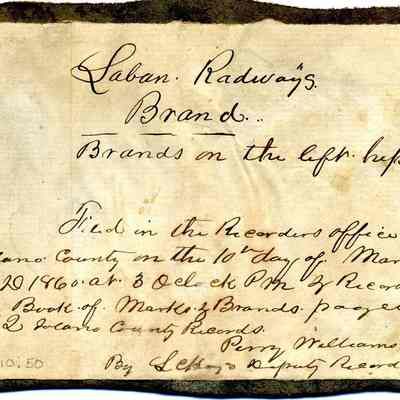 Laban. Radways.
Brand..
Brands on the left hip
Filed in the Recorders office
olano County on the 10th day of Mar
AD 1860 at 3 Oclock P.m & Record
Book of Marks & Brands page
2 Solano County Records.
Perry Williams
By Deputy Record
10.50